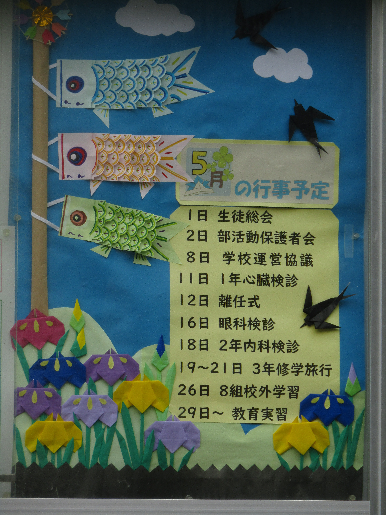 5月の行事予定
1日 生徒総会
2日 部活動保護者会
8日 学校運営協議
11日 1年心臓検診
12日 離任式
16日 眼科検診
18日 2年内科検診
19～21日 3年修学旅行
26日 8組校外学習
29日～ 教育実習